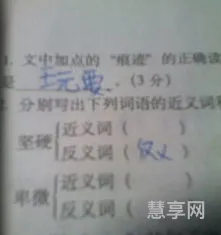 1. 文中加点的“痕迹”的正确读
是 玩耍 。(3 分)
2. 分别写出下列词语的近义词和
坚硬 近义词 ( )
反义词 ( 仅仅 )
卑微 近义词 ( )
反义词 ( )
慧享网